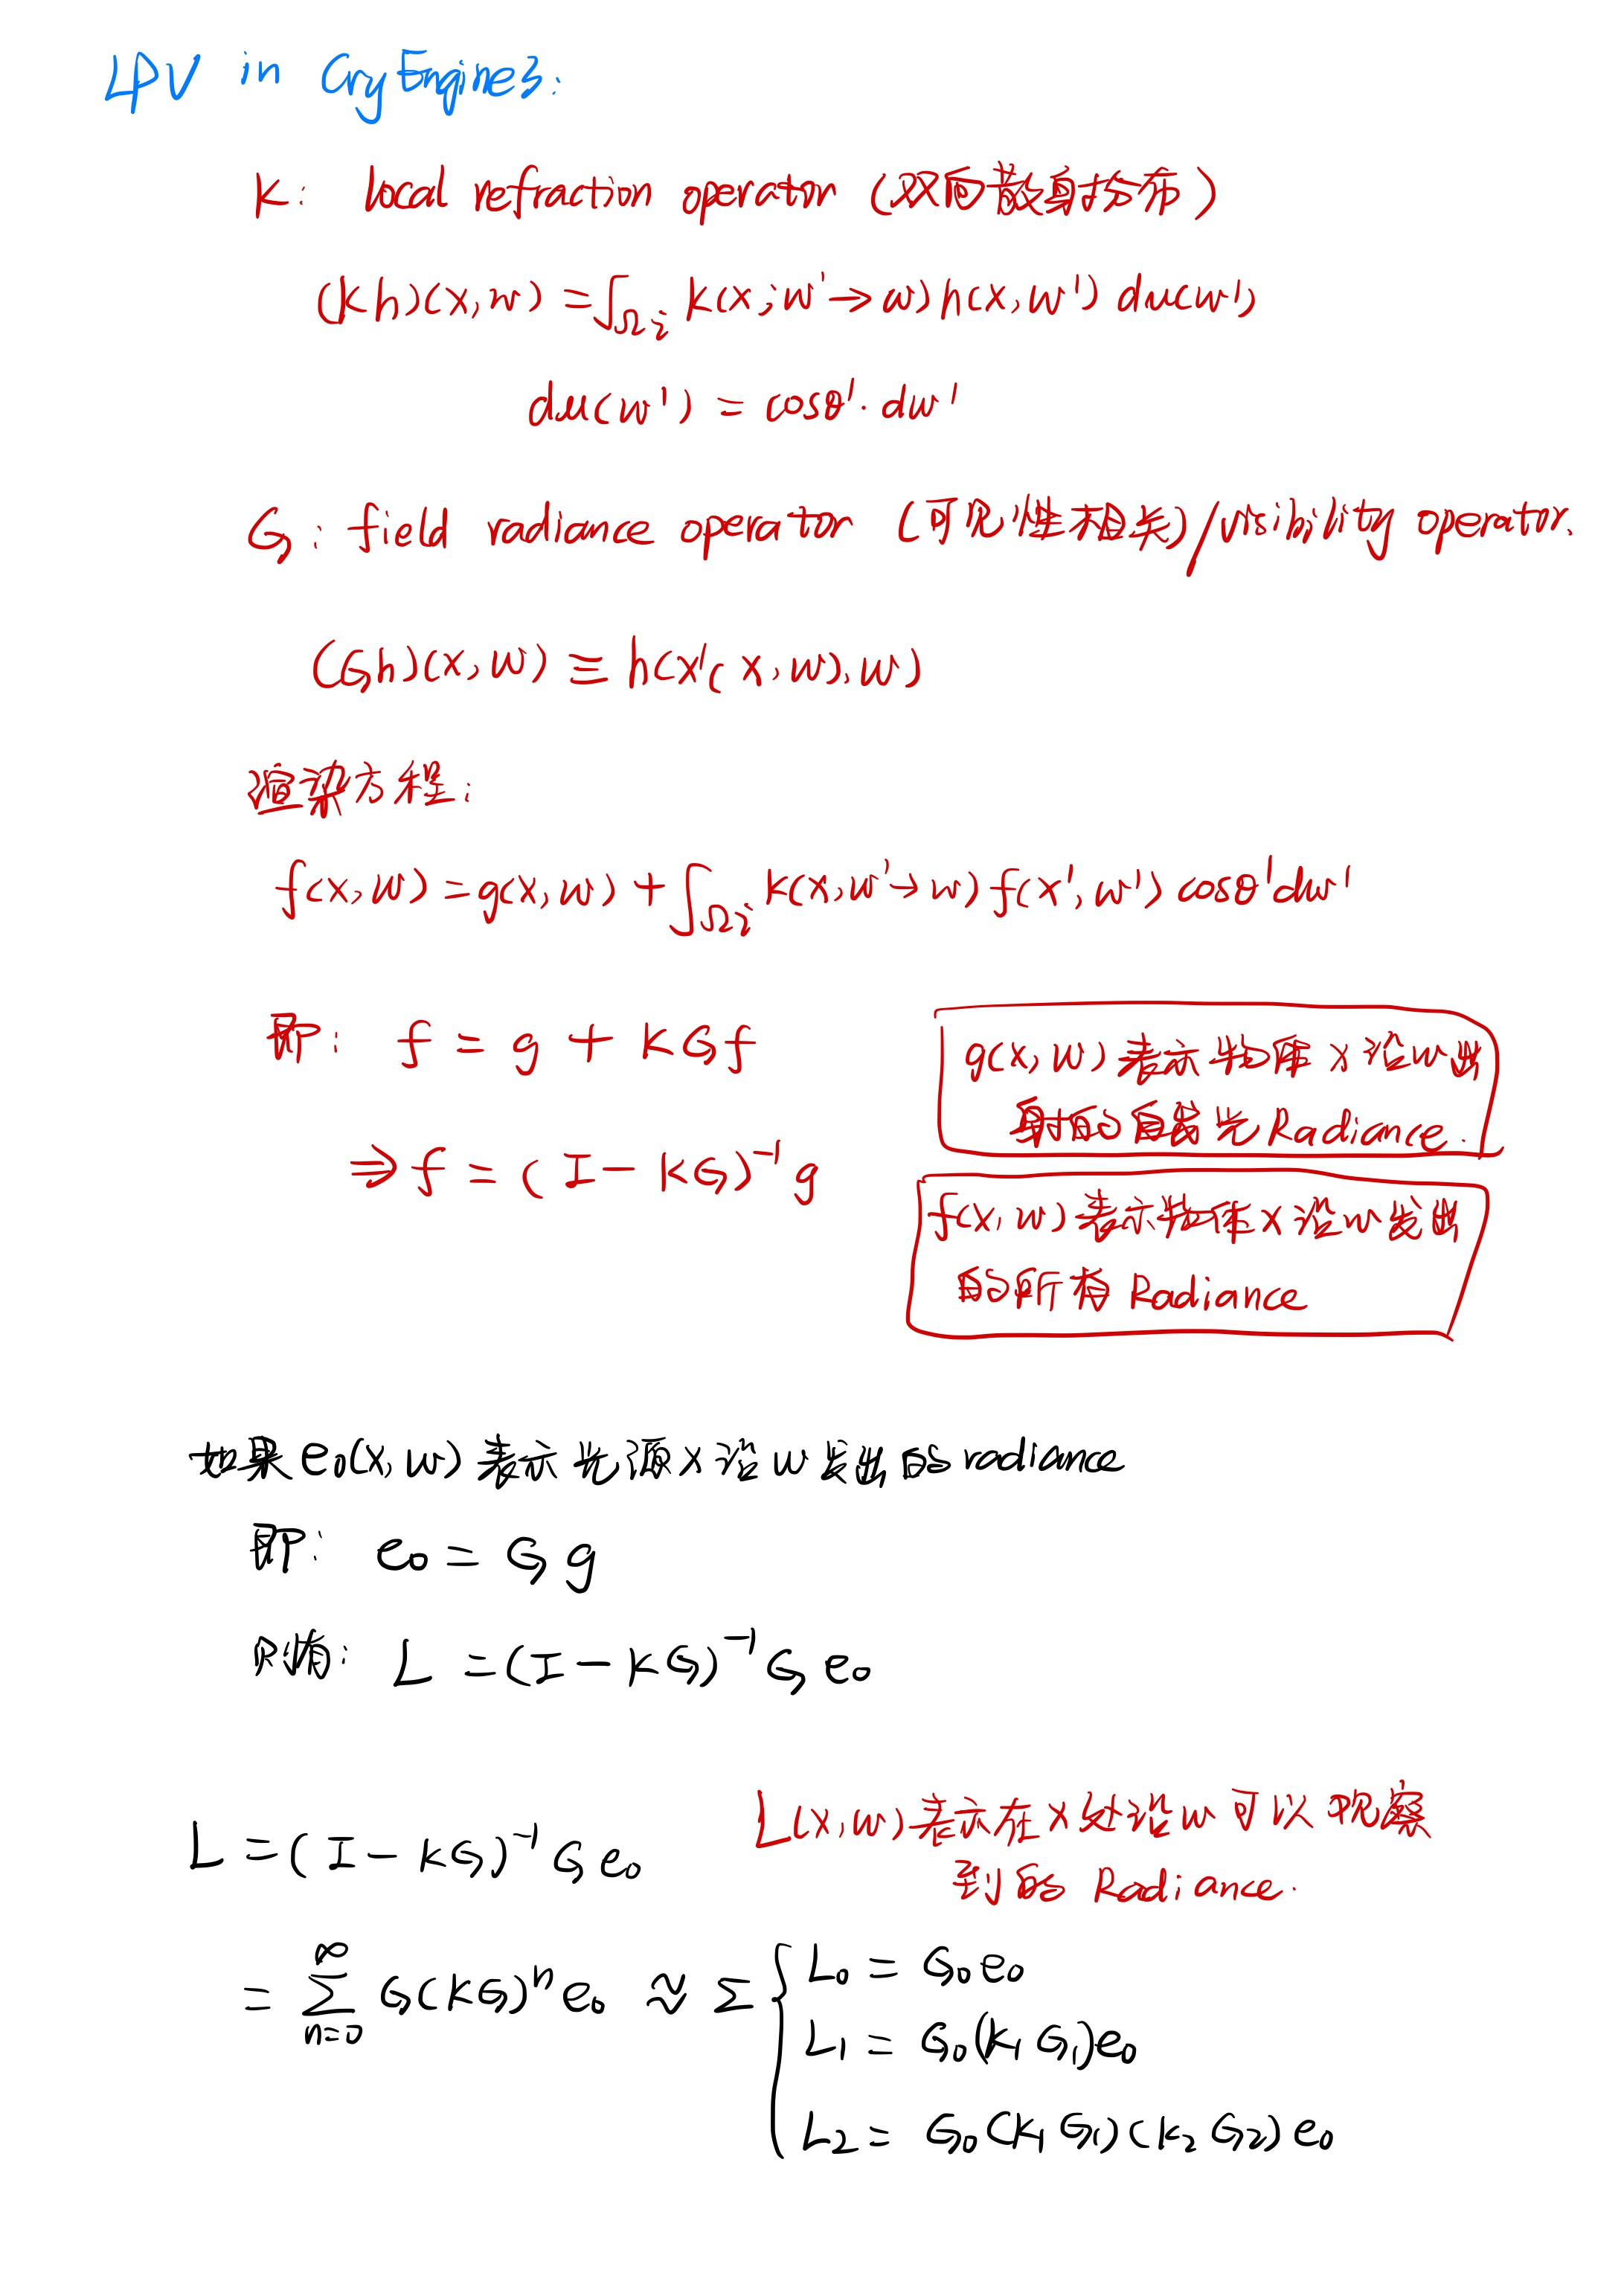 LPV in CryEngine3:
K: local refraction operator (双向散射分布)
(Kh)(x,w) = ∫Ωi k(x; w'→w) h(x,w') du(w')
du(w') = cosθ'·dw'
G: field radiance operator (可见性相关)/visibility operator.
(Gh)(x,w) ≡ h(x'(x,w),w)
渲染方程:
f(x,w) = g(x,w) + ∫Ωi k(x,w'→w) f(x',w') cosθ'dw'
即: f = g + KGf
g(x,w)表示物体x沿w出
射的自发光Radiance.
⇒ f = (I-KG)⁻¹g
f(x,w)表示物体x沿w发出
的所有Radiance
如果e₀(x,w)表示光源x沿w发出的radiance
即: e₀ = Gg
则有: L = (I-KG)⁻¹Ge₀
L(x,w)表示在x处沿w可以观察
到的Radiance.
L = (I-KG)⁻¹Ge₀
= ∑_{n=0}^{∞} G(KG)ⁿe₀ ≈ Σ { L₀ = G₀e₀
L₁ = G₀(K₁G₁)e₀
L₂ = G₀(K₁G₁)(K₂G₂)e₀